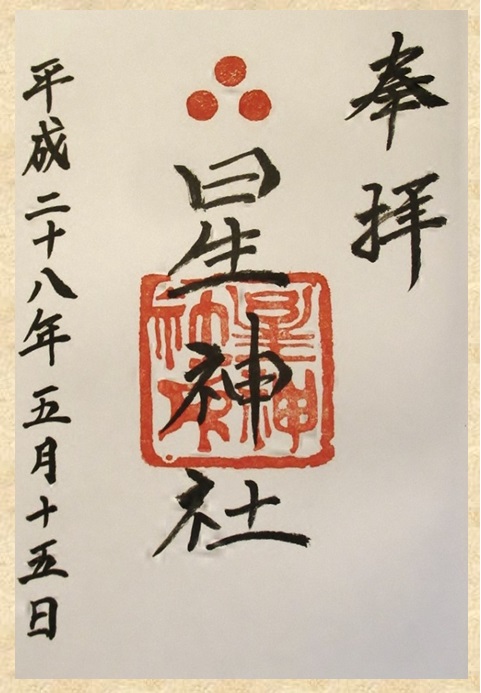 奉拝
星神社
平成二十八年五月十五日